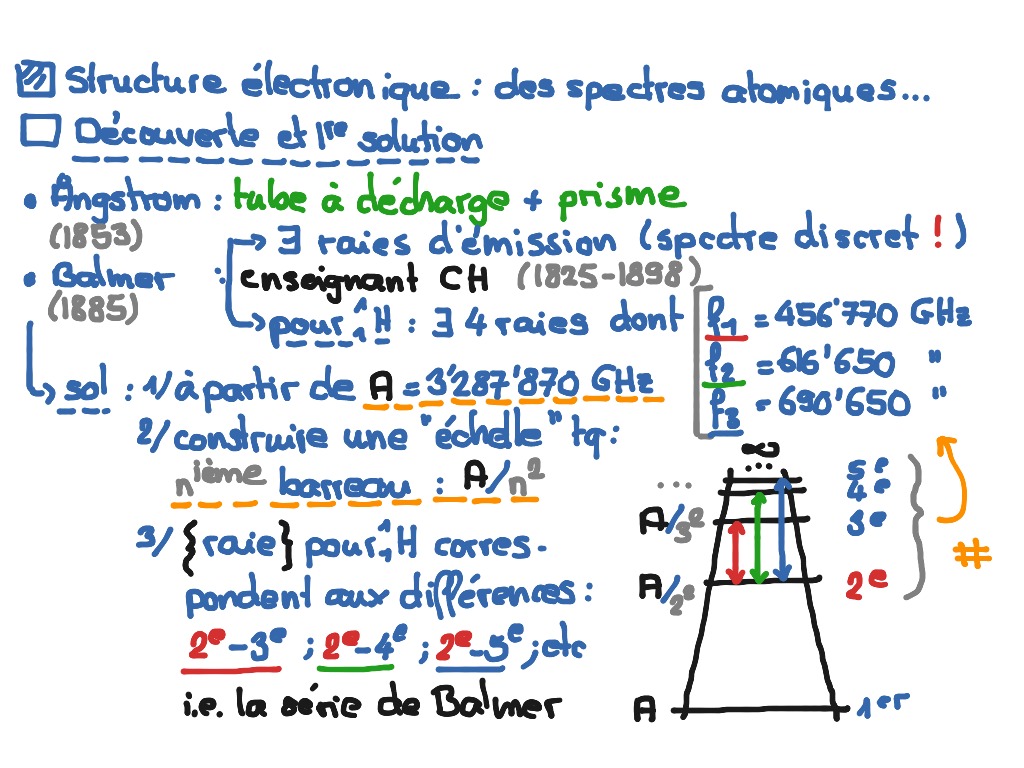 Structure électronique : des spectres atomiques...
Découverte et 1re solution
• Ångstrom : tube à décharge + prisme
(1853)
→ ∃ raies d'émission (spectre discret !)
• Balmer : enseignant CH (1825-1898)
(1885)
→ pour ₁H : ∃ 4 raies dont
f1 = 456'770 GHz
f2 = 616'650 "
f3 = 690'650 "
→ sol : 1/ à partir de A = 3'287'870 GHz
2/ construire une "échelle" tq:
nième barreau : A/n²
3/ {raie} pour ₁H corres-
pondent aux différences :
2e-3e ; 2e-4e ; 2e-5e ; etc
i.e. la série de Balmer
∞
...
... 5e
4e
A/3² 3e
#
A/2² 2e
A 1er